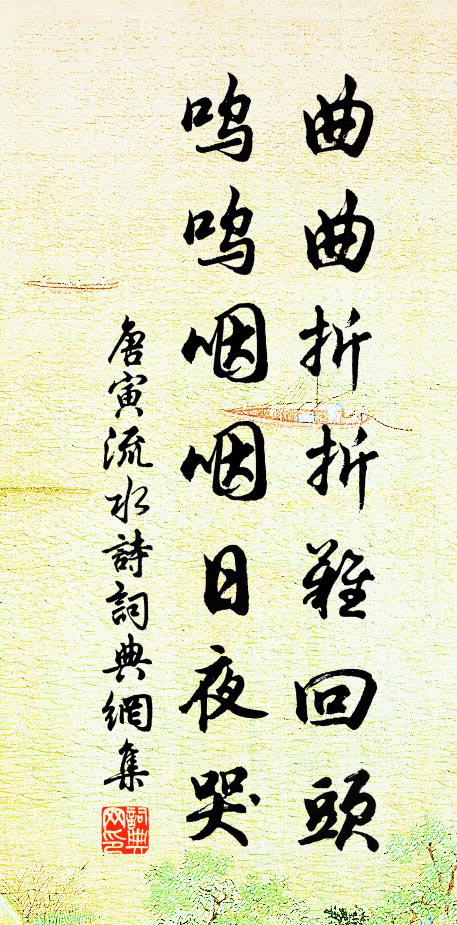 曲曲折折難回頭
嗚嗚咽咽日夜哭
唐寅流水詩詞典網集
詞典
网印